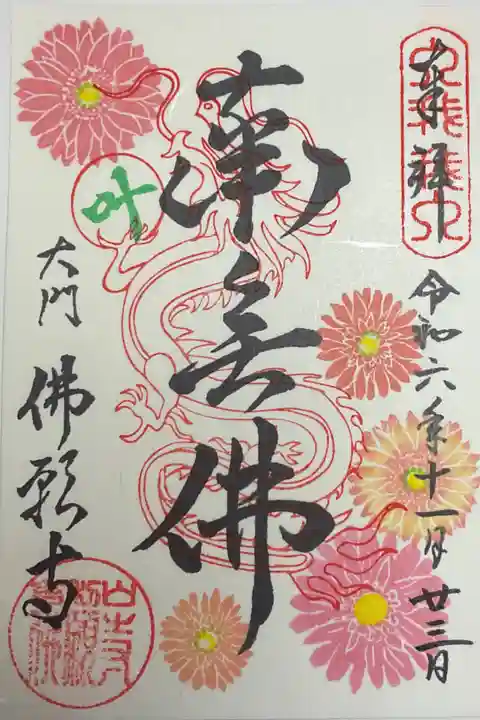 奉拝
令和六年十一月廿三日
南無佛
叶
大門
佛願寺